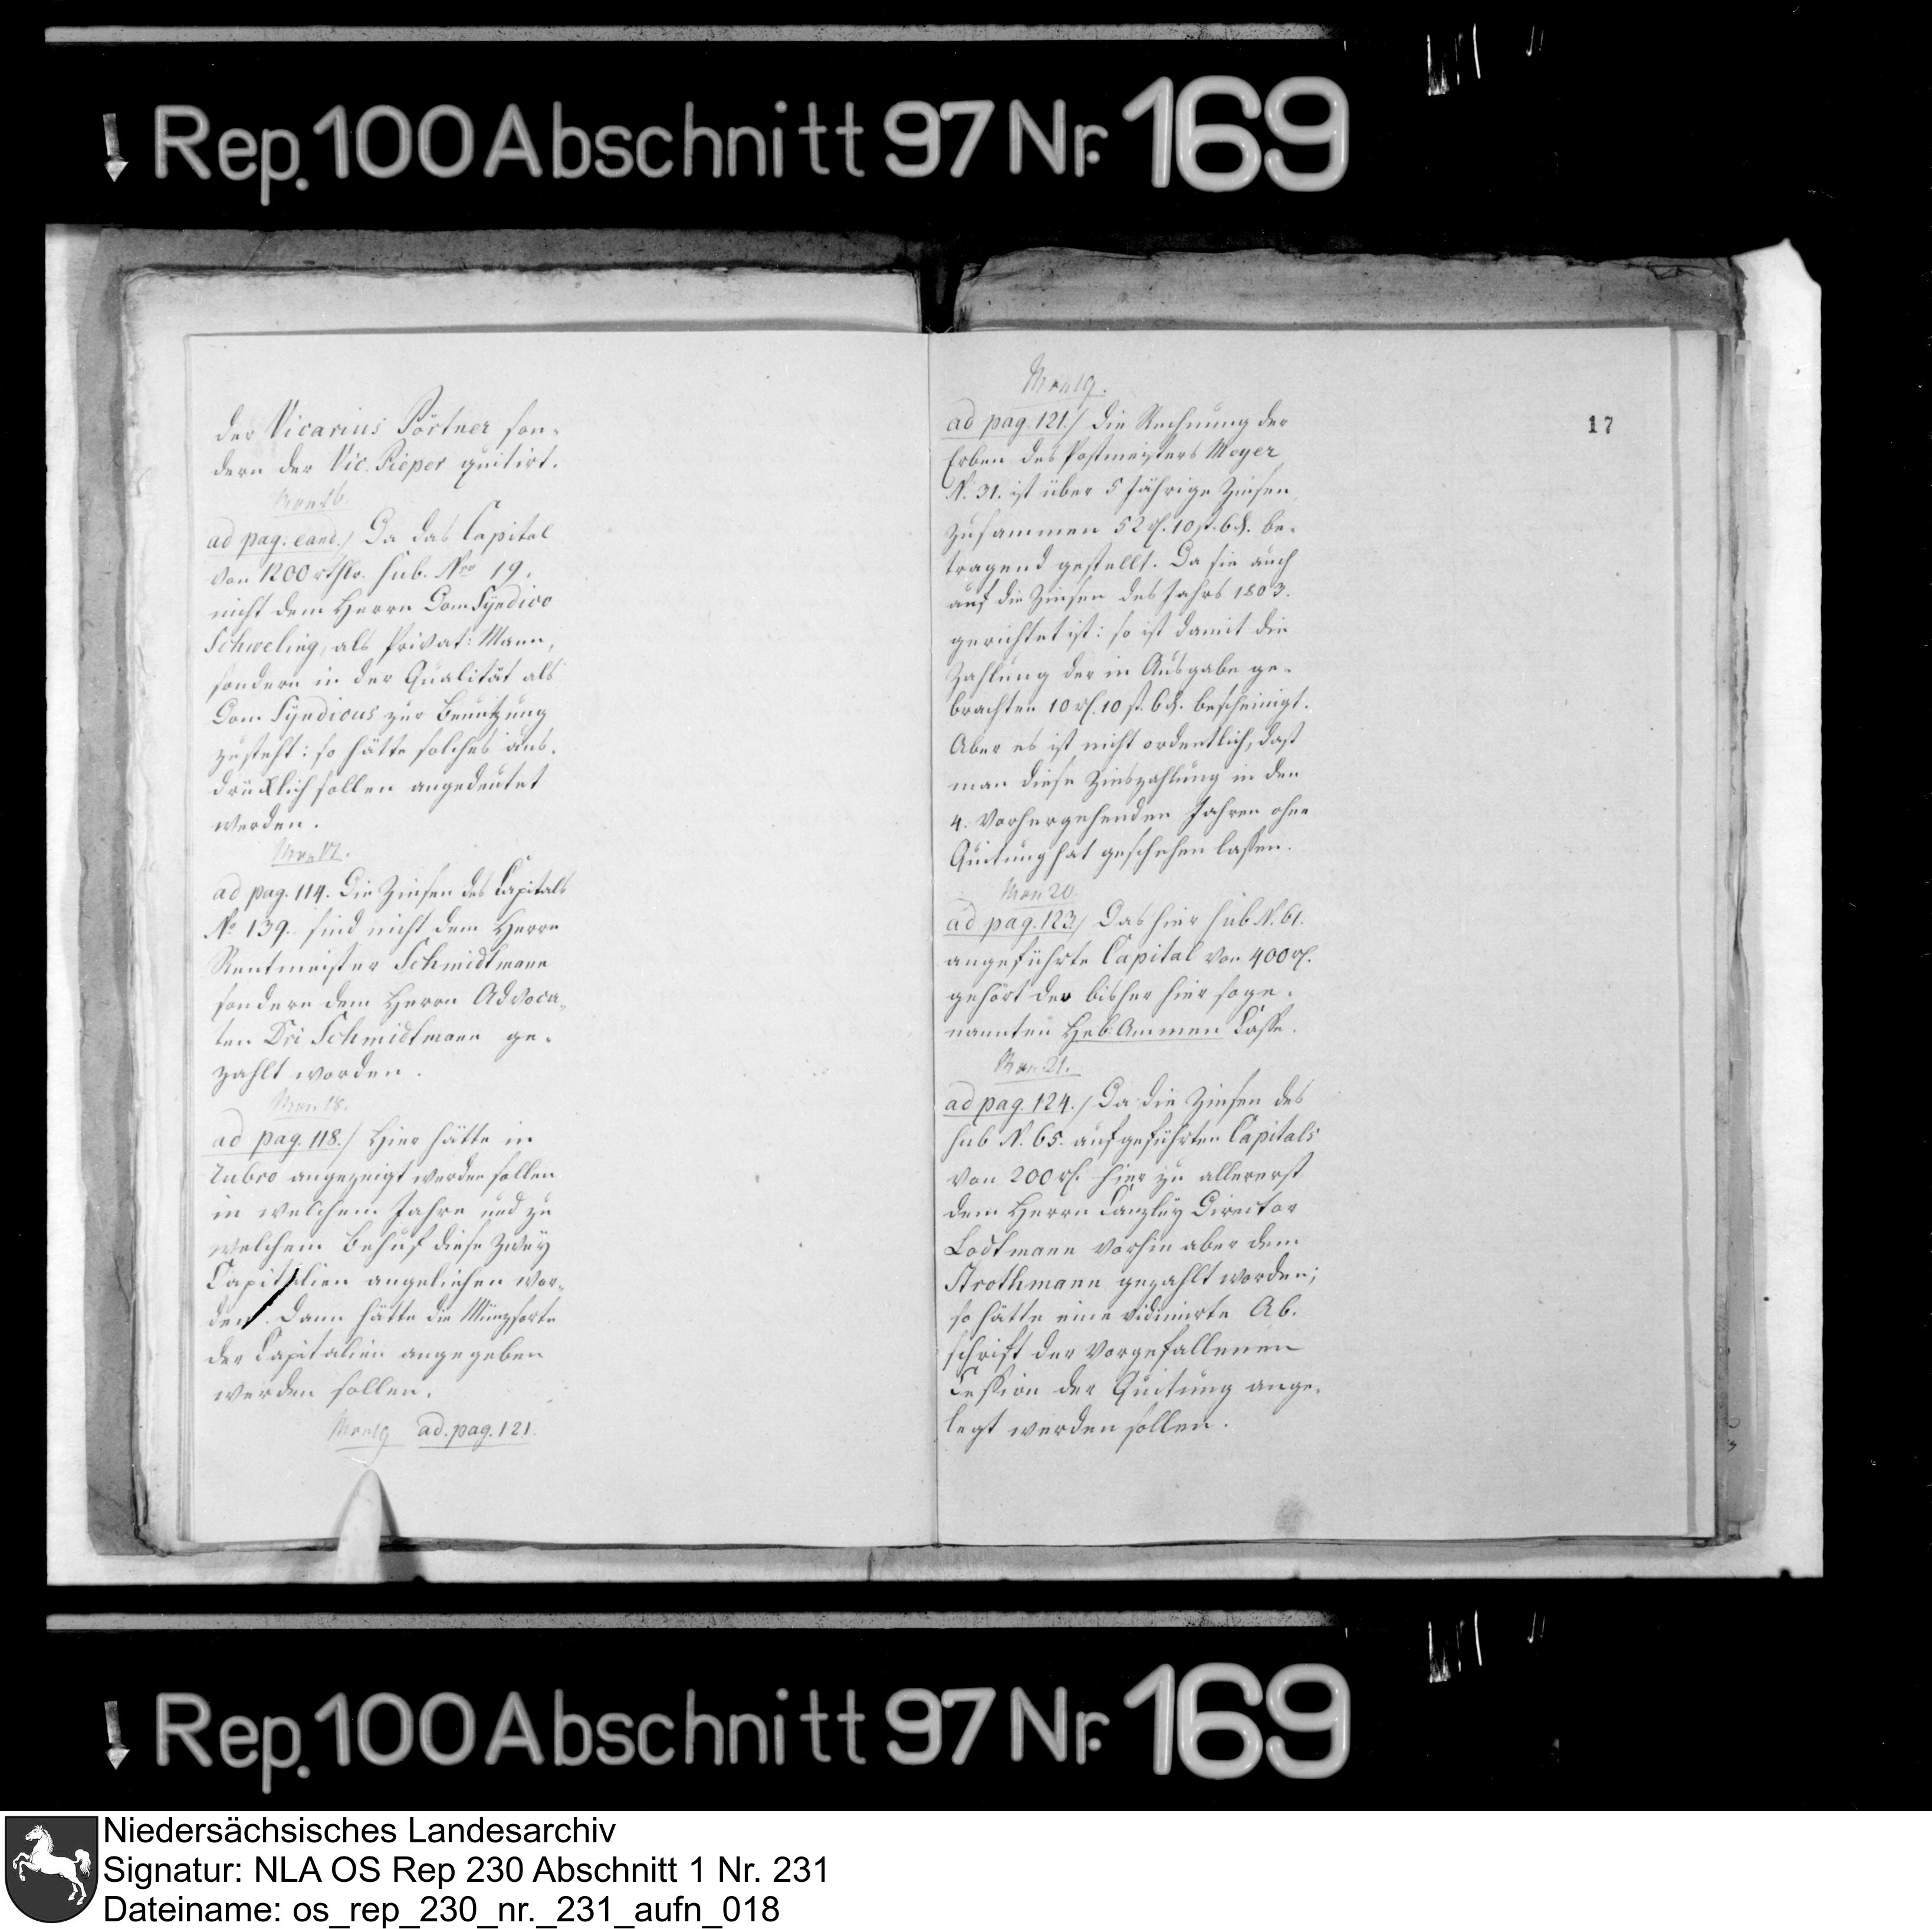 Rep. 100 Abschnitt 97 Nr. 169
der Vicarius Pörtner son-
dern der Vic. Pieper quitirt.
Mon 16.
ad pag. eand./ Da das Capital
von 1200 rthlr. sub. Nro 19.
nicht dem Herrn Dom Syndico
Schweling, als Privat: Mann,
sondern in der Qualität als
Dom Syndicus zur Benutzung
zusteht: so hätte solches aus-
drücklich sollen angedeutet
werden.
Mon 17.
ad pag. 114. Die Zinsen des Capitals
No 139. sind nicht dem Herrn
Rentmeister Schmidtmann
sondern dem Herrn Advoca-
ten Dri Schmidtmann ge-
zahlt worden.
Mon 18.
ad pag. 118./ Hier hätte in
rubro angezeigt werden sollen
in welchem Jahre und zu
welchem Behuf diese zwey
Capitalien angeliehen wor-
den. Dann hätte die Münzsorte
der Capitalien angegeben
werden sollen.
Mon 19 ad. pag. 121.
Mon 19.
17
ad pag. 121./ Die Rechnung der
Erben des Postmeisters Meyer
N. 31. ist über 5 Jährige Zinsen
zusammen 52 rh. 10 ß. 6 d. be-
tragend gestellt. Da sie auch
auf die Zinsen des Jahrs 1803.
gerichtet ist: so ist damit die
Zahlung der in Ausgabe ge-
brachten 10 rh. 10 ß. 6 d. bescheinigt.
Aber es ist nicht ordentlich, daß
man diese Zinszahlung in den
4. vorhergehenden Jahren ohne
Quitung hat geschehen lassen.
Mon 20.
ad pag. 123./ Das hier sub N. 61.
angeführte Capital von 400 rh.
gehört der bisher hier soge-
nannten Heb-Ammen Casse.
Mon 21.
ad pag. 124./ Da die Zinsen des
sub N. 65. aufgeführten Capitals
von 200 rh. hier zu allererst
dem Herrn Canzley Director
Lodtmann vorhin aber dem
Strothmann gezahlt worden;
so hätte eine vidimirte Ab-
schrift der vorgefallenen
Cession der Quitung ange-
legt werden sollen.
Rep. 100 Abschnitt 97 Nr. 169
Niedersächsisches Landesarchiv
Signatur: NLA OS Rep 230 Abschnitt 1 Nr. 231
Dateiname: os_rep_230_nr._231_aufn_018